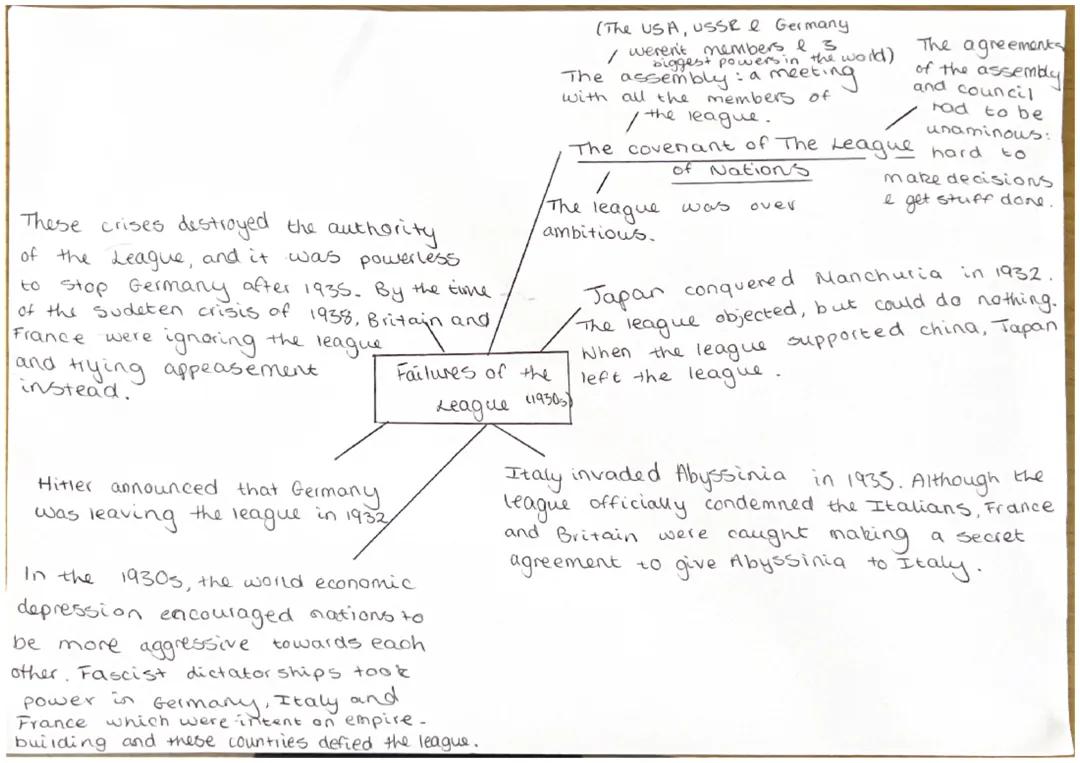 (The USA, USSR & Germany
weren't members & 3
biggest powers in the world)
The assembly: a meeting
with all the members of
the league.
The agreements
of the assembly
and council
had to be
unaminous:
hard to
make decisions
& get stuff done.
The covenant of The League
of Nations
The league was over
ambitious.
These crises destroyed the authority
of the League, and it was powerless
to stop Germany after 1935. By the time
of the Sudeten crisis of 1938, Britain and
France were ignoring the league
and trying appeasement
instead.
Japan conquered Manchuria in 1932.
The league objected, but could do nothing.
When the league supported china, Japan
left the league.
Failures of the
League (1930s)
Hitler announced that Germany
was leaving the league in 1932
Italy invaded Abyssinia in 1935. Although the
league officially condemned the Italians, France
and Britain were caught making a secret
agreement to give Abyssinia to Italy.
In the 1930s, the world economic
depression encouraged nations to
be more aggressive towards each
other. Fascist dictatorships took
power in Germany, Italy and
France which were intent on empire-
building and these countries defied the league.